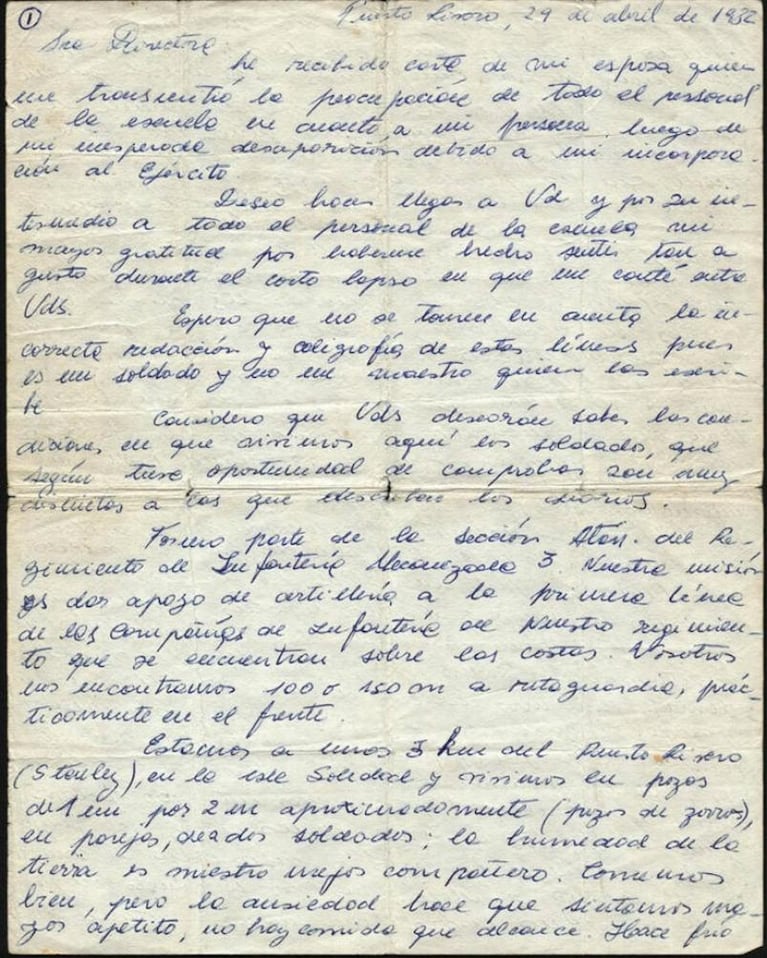 1
Puerto Rivero, 29 de abril de 1982
Sra Directora
he recibido carta de mi esposa quien
me transmitió la preocupación de todo el personal
de la escuela en cuanto a mi persona luego de
mi inesperada desaparición debido a mi incorpora-
ción al Ejército
Deseo hacer llegar a Vd y por su in-
termedio a todo el personal de la escuela mi
mayor gratitud por haberme hecho sentir tan a
gusto durante el corto lapso en que me conté entre
Vds.
Espero que no se tomen en cuenta la in-
correcta redacción y caligrafía de estas líneas pues
es un soldado y no un maestro quien las escri-
be
Considero que Vds desearán saber las con-
diciones en que vivimos aquí los soldados, que
según tuve oportunidad de comprobar son muy
distintas a las que describen los diarios.
Formo parte de la Sección Aton. del Re-
gimiento de Infantería Mecanizada 3. Nuestra misión
es dar apoyo de artillería a la primera línea
de las Compañías de Infantería de Nuestro regimien-
to que se encuentran sobre las costas. Nosotros
nos encontramos 100 o 150 m a retaguardia, prác-
ticamente en el frente.
Estamos a unos 3 km del Puerto Rivero
(Stanley), en la isla Soledad y vivimos en pozos
de 1 m por 2 m aproximadamente (pozos de zorros),
en parejas, de a dos soldados; la humedad de la
tierra es nuestro mejor compañero. Comemos
bien, pero la ansiedad hace que sintamos ma-
yor apetito, no hay comida que alcance. Hace frío